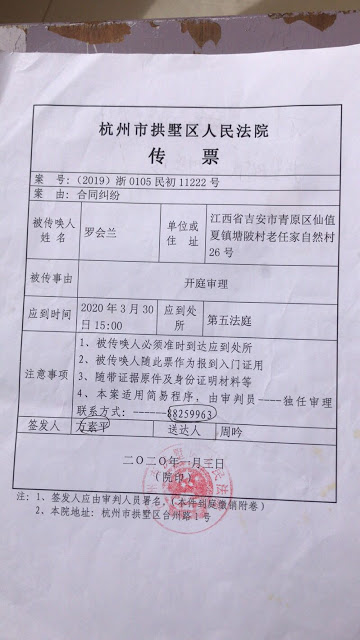 杭州市拱墅区人民法院
传票
案号:（2019）浙 0105 民初 11222 号
案由: 合同纠纷
被传唤人姓名 罗会兰 单位或住址 江西省吉安市青原区仙值
夏镇塘陂村老任家自然村
26 号
被传事由 开庭审理
应到时间 2020 年 3 月 30
日 15:00 应到处所 第五法庭
注意事项
1、被传唤人必须准时到达应到处所
2、被传唤人随此票作为报到入门证用
3、随带证据原件及身份证明材料等
4、本案适用简易程序，由审判员----独任审理
联系方式：------88259963
签发人 方素平 送达人 周吟
二〇二〇年一月三日
（院印）
注：1、签发人应由审判人员署名。（本件到庭缴销附卷）
2、本院地址：杭州市拱墅区台州路 1 号